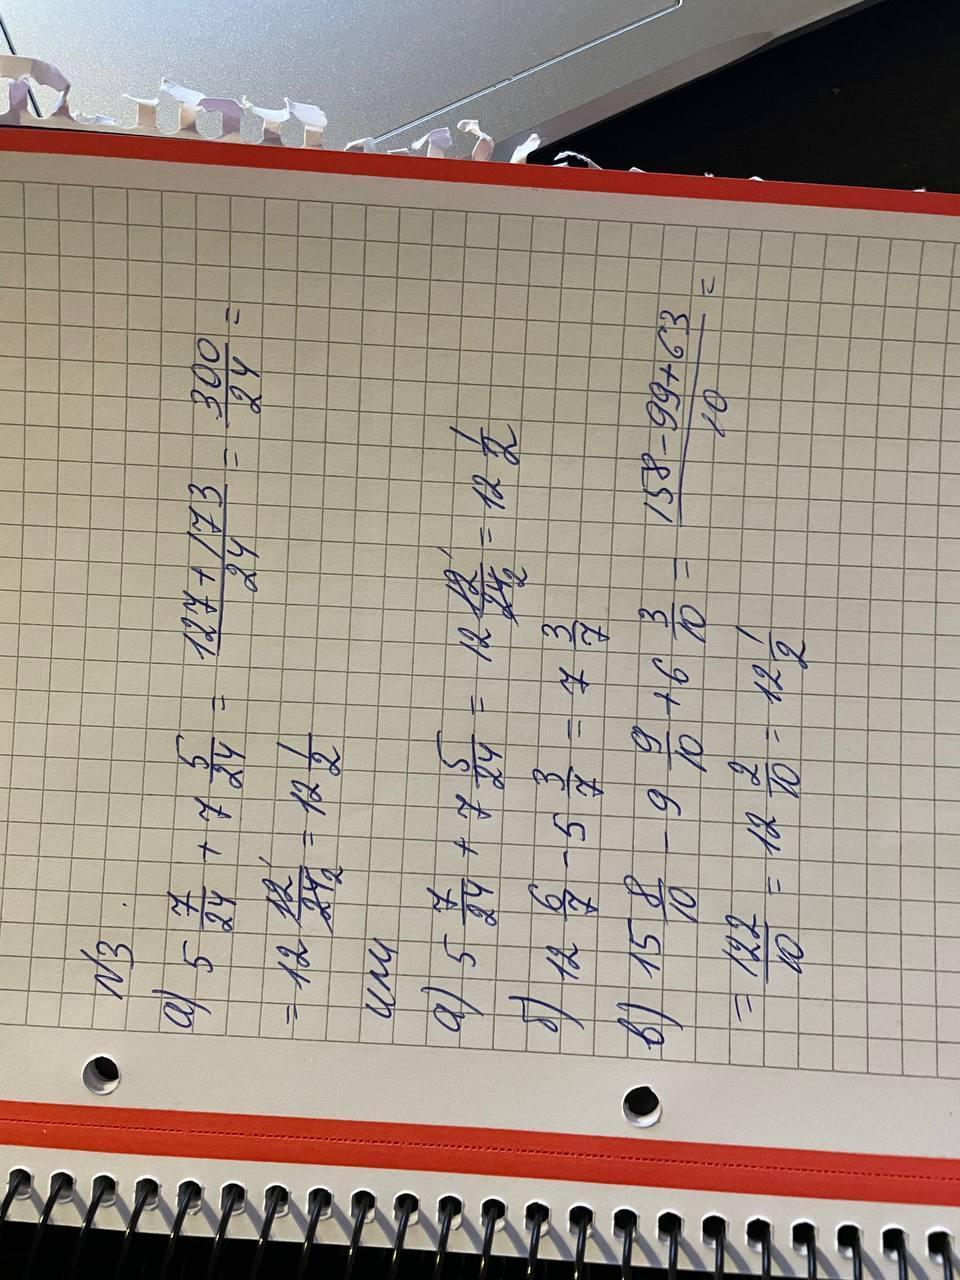 N3
а) 5 7/24 + 7 5/24 = 127 + 173/24 = 300/24 =
= 12 12 1/24 2 = 12 1/2
или
а) 5 7/24 + 7 5/24 = 12 12 1/24 2 = 12 1/2
б) 12 6/7 - 5 3/7 = 7 3/7
в) 15 8/10 - 9 9/10 + 6 3/10 = 158 - 99 + 63/10 =
= 122/10 = 12 2/10 = 12 1/2